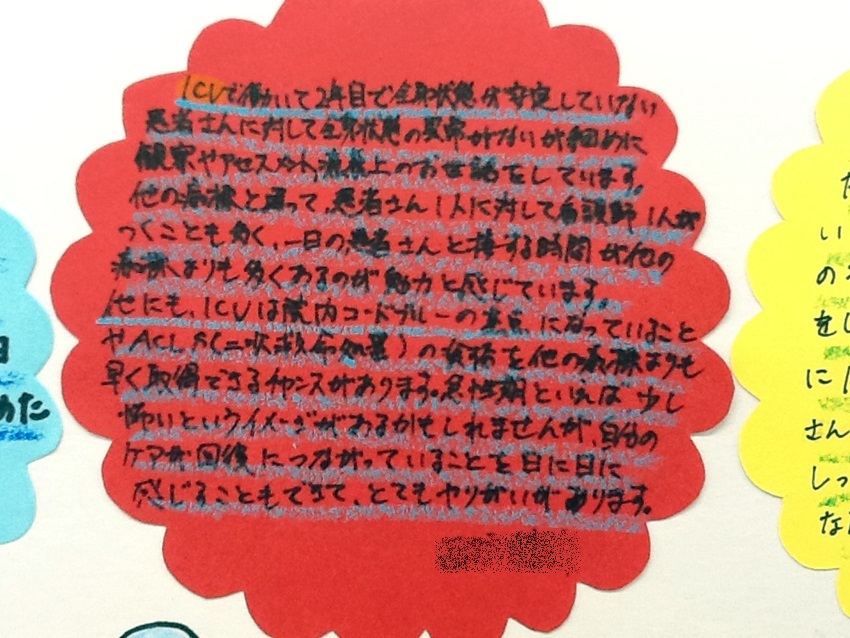 ICUで働いて2年目で全身状態が安定していない
患者さんに対して全身状態の変命がないか細めに
観察やアセスメント、療養上のお世話をしています。
他の病棟と違って、患者さん1人に対して看護師1人が
つくことも多く、一日の患者さんと接する時間が他の
病棟よりも多くあるのが魅力と感じています。
他にも、ICUは院内コードブルーの になっていること
やACLS(二次救命処置)の資格を他の病棟よりも
早く取得できるチャンスがあります。急性期といえば少し
怖いというイメージがあるかもしれませんが、自分の
ケアが回復につながっていることを日に日に
感じることもできて、とてもヤリがいがあります。
めた
い
の
をし
に
さん
しっ
な